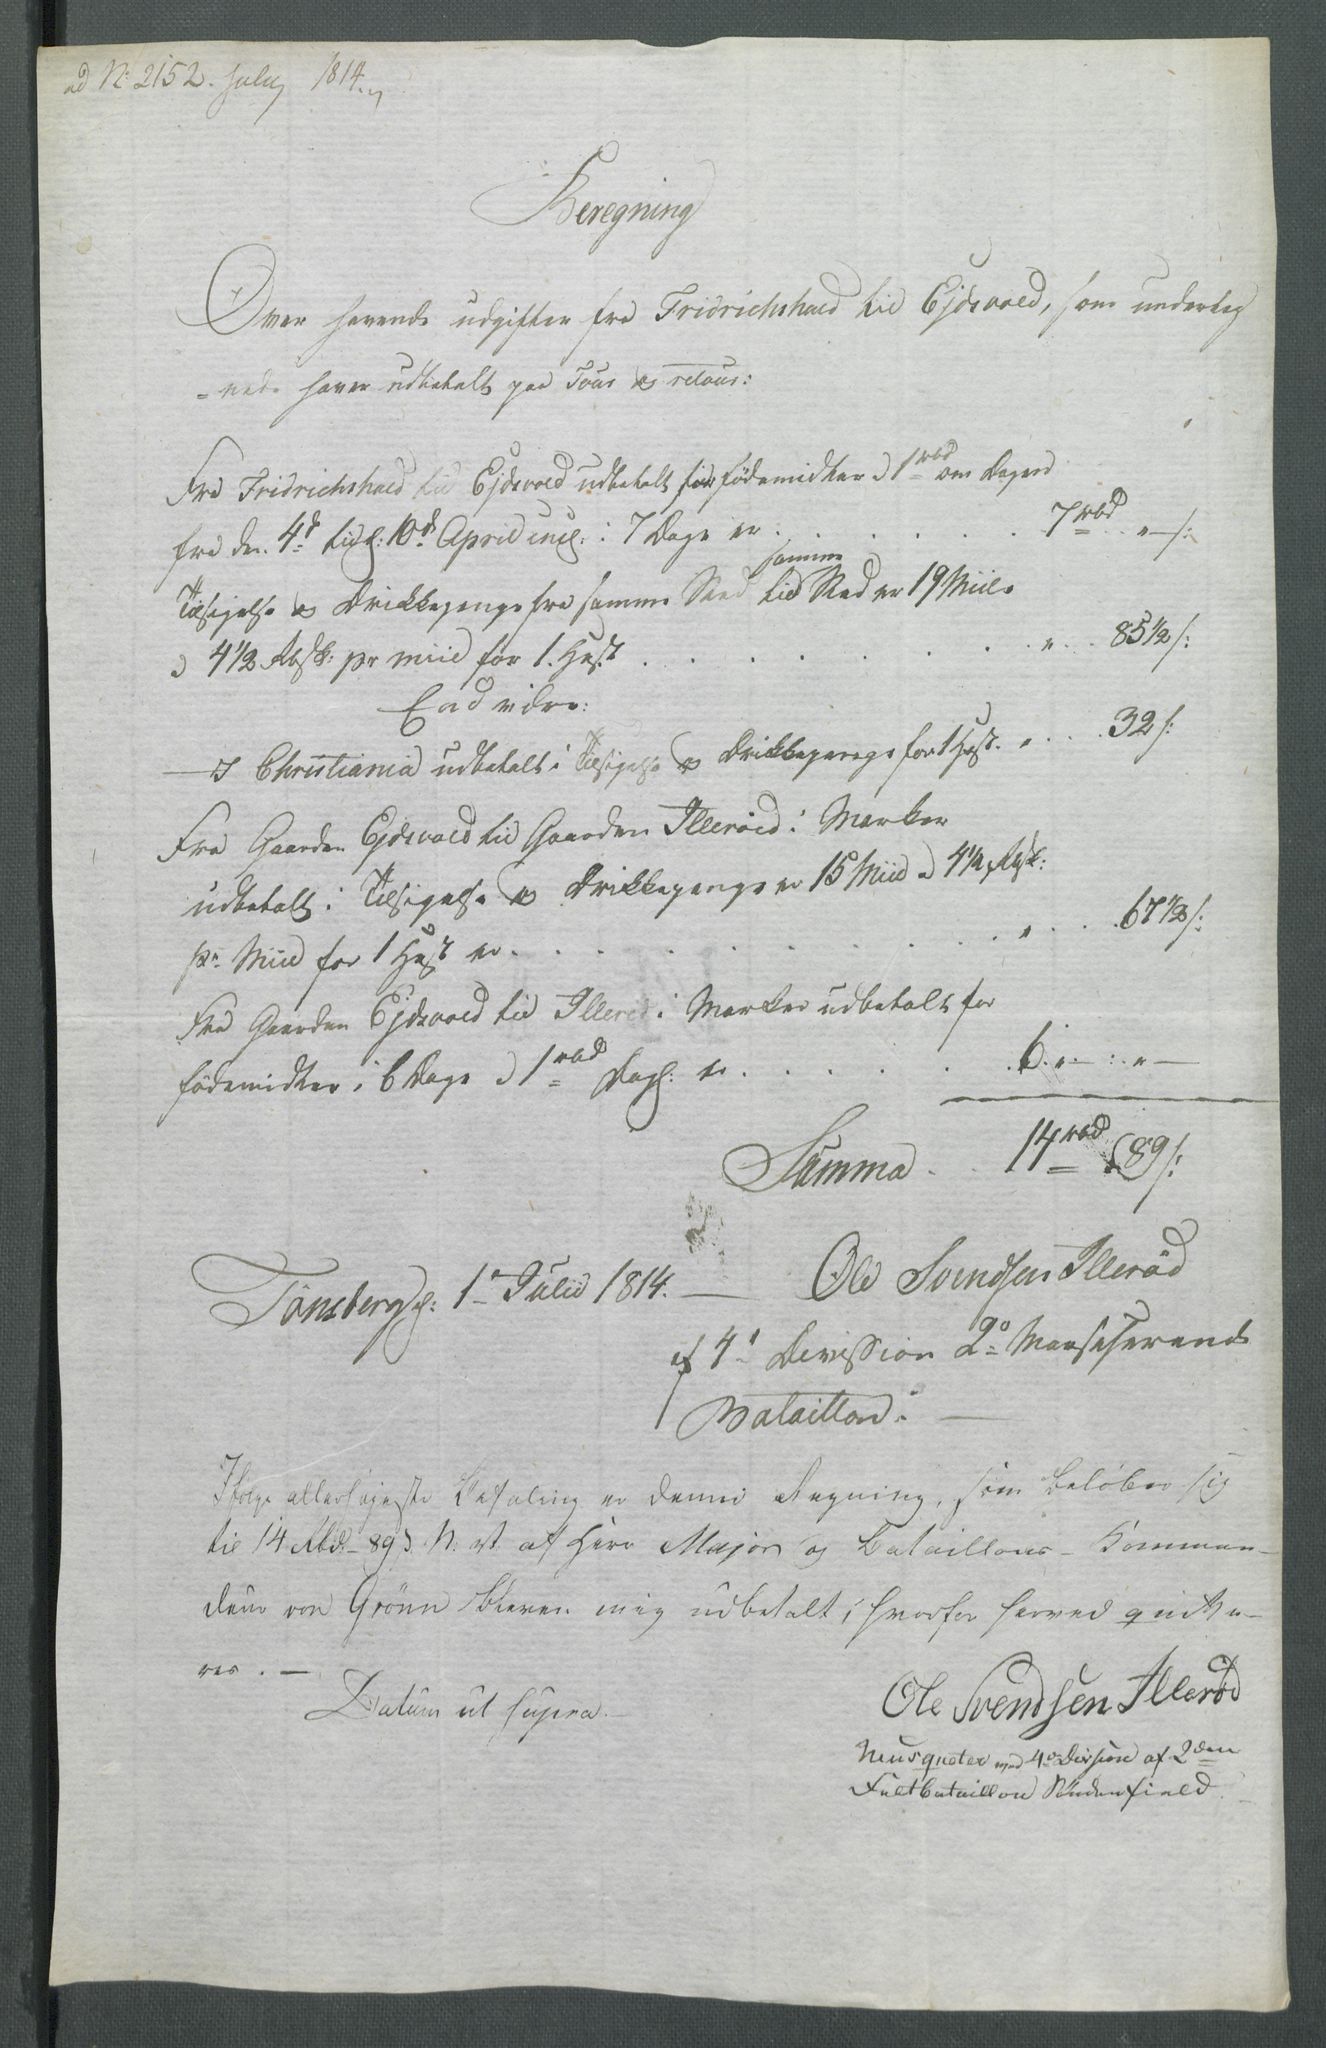 ad N: 2152. July 1814.
Beregning
Over havende udgifter fra Fridrichshald til Ejdsvold, som underteg
=nede haver udbetalt paa Tour og retour:
Fra Fridrichshald til Ejdsvold udbetalt for födemidler a 1 rbd om Dagen
fra den 4d til 10d April incl: i 7 Dage er . . . . . . 7 rbd „ – s:
samme
Tilsigelse og Drikkepenge fra samme Sted til Sted er 19 Miile
a 4 1/2 Rbsk: pr Miil for 1. Hest . . . . . . . „ . . 85 1/2 s:
End videre:
— I Christiania udbetalt i Tilsigelse og Drikkepenge for 1 Hest. „ . . . 32 s:
Fra Gaarden Ejdsvold til Gaarden Illeröd i Marker
udbetalt i Tilsigelse og Drikkepenge er 15 Miil a 4 1/2 Rbsk:
pr. Miil for 1 Hest er . . . . . . . . . „ . . . 67 1/2 s:
Fra Gaarden Ejdsvold til Illeröd i Marker udbetalt for
födemidler i 6 Dage a 1 rbd Dagl: er . . . . . . 6 „ – : „ –
Summa . . 14 rbd 89 s:
Tönsberg d: 1 Julii 1814. — Ole Svendsen Illeröd
af 4d Division 2° Marscherende
Bataillon. —
Ifölge allerhöjeste Befaling er denne Regning, som belöber sig
til 14 Rbd – 89 s. N. V. af Herr Major og Bataillons-Komman-
deur von Grönn bleven mig udbetalt, hvorfor herved quitte-
res. —
Datum ut supra. —
Ole Svendsen Illeröd
Musqueter ved 4de Divsion af 2den
Feltbataillon Söndenfield